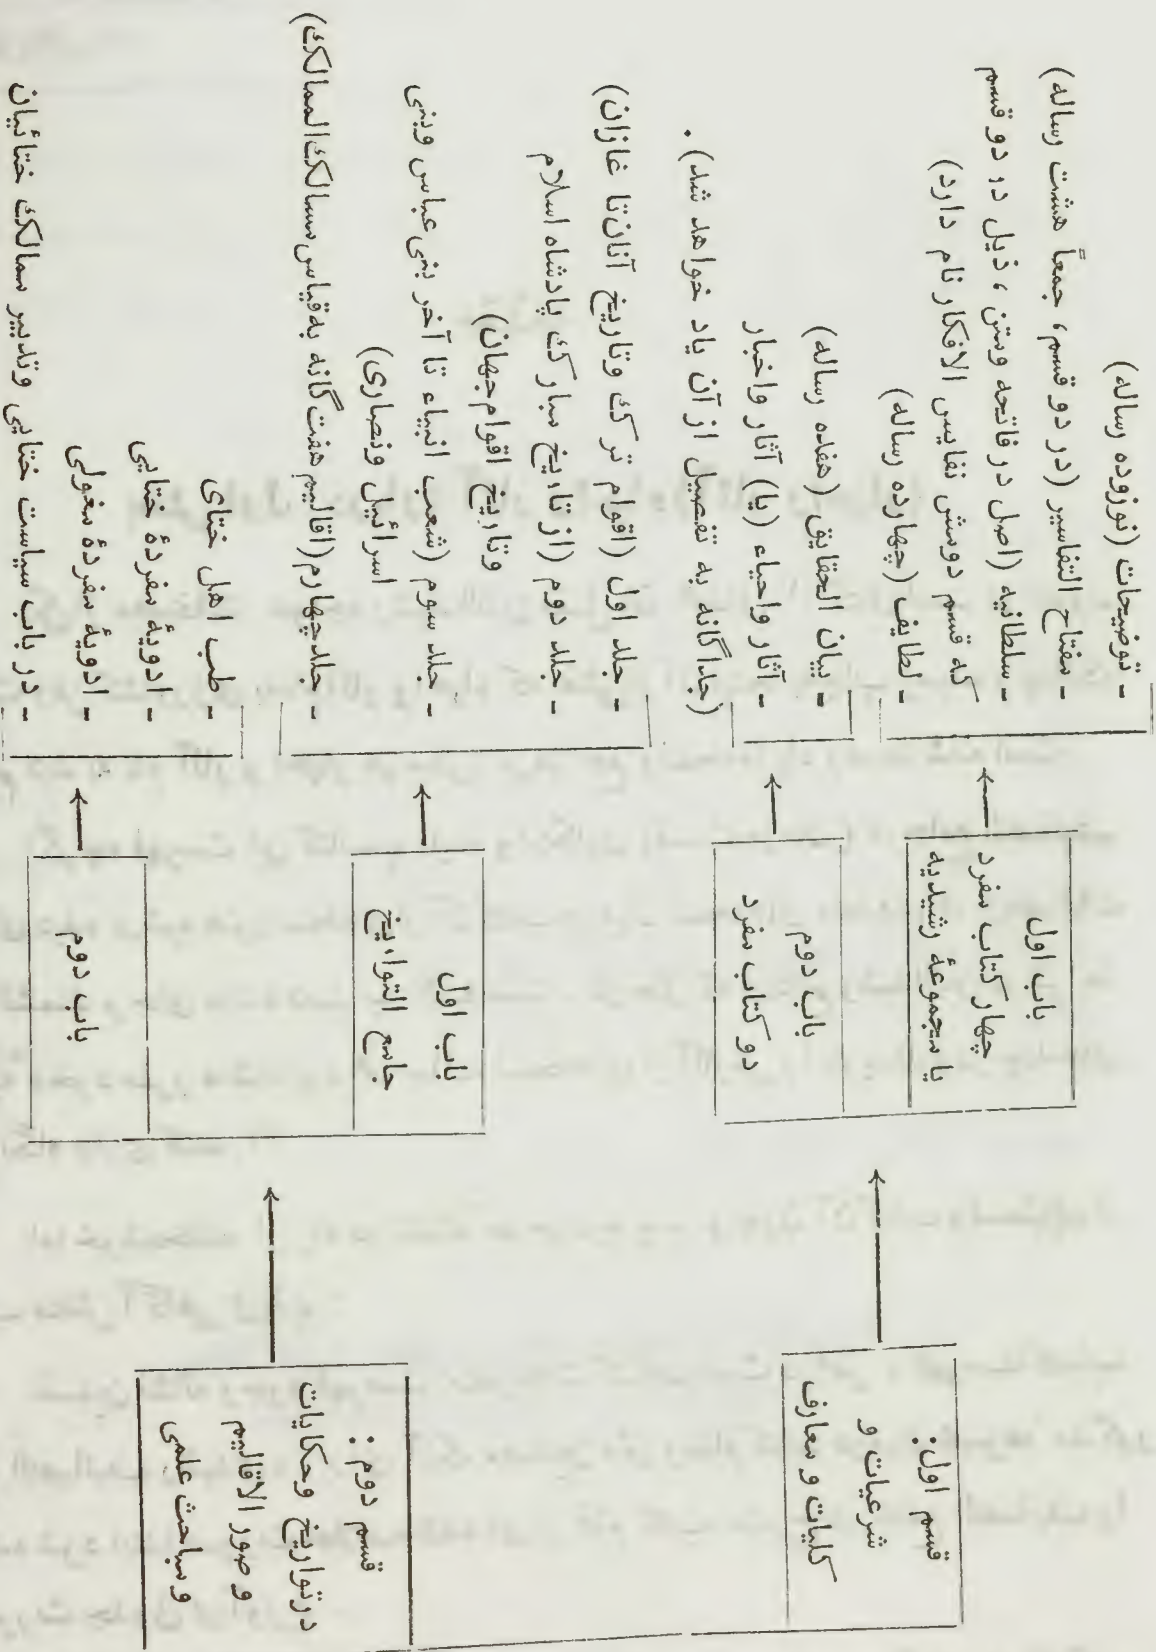 قسم اول:
شرعیات و
کلیات و معارف
باب اول
چهار کتاب مفرد
یا مجموعهٔ رشیدیه
- توضیحات (نوزوده رساله)
- مفتاح التفاسیر (در دو قسم، جمعاً هشت رساله)
- سلطانیه (اصل در فاتحه ومتن، ذیل در دو قسم
که قسم دومش نفایس الافکار نام دارد)
- لطایف (چهارده رساله)
باب دوم
دو کتاب مفرد
- بیان الحقایق (هفده رساله)
- آثار واحیاء (یا) آثار واخبار
(جداگانه به تفصیل از آن یاد خواهد شد).
قسم دوم:
در تواریخ وحکایات
و صور الاقالیم
و مباحث علمی
باب اول
جامع التواریخ
- جلد اول (اقوام ترک وتاریخ آنان تا غازان)
- جلد دوم (از تاریخ مبارک پادشاه اسلام
وتاریخ اقوام جهان)
- جلد سوم (شعب انبیاء تا آخر بنی عباس وبنی
اسرائیل ونصاری)
- جلدچهارم (اقالیم هفت گانه به قیاس مسالک الممالک)
باب دوم
- طب اهل ختای
- ادویهٔ مفردهٔ ختایی
- ادویهٔ مفردهٔ مغولی
- در باب سیاست ختایی وتدبیر ممالک ختائیان